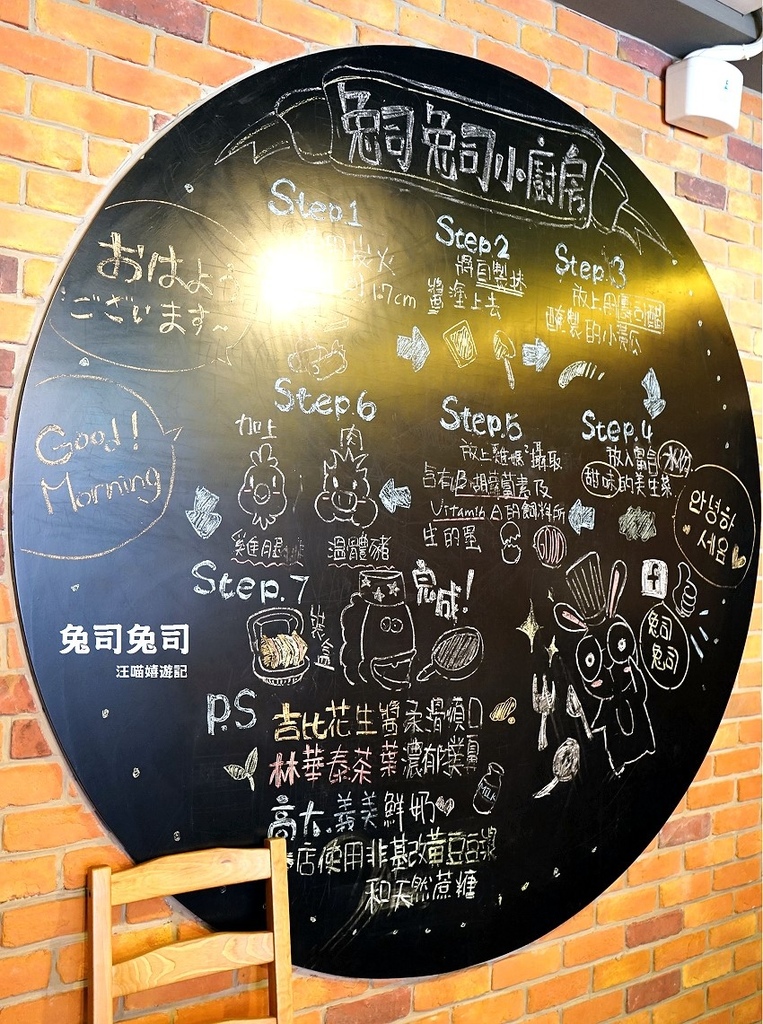 兔司兔司小廚房
おはよう
ございます~
Step.1
炭火
1.7cm
Step.2
將自製抹
醬塗上去
Step.3
放上用壽司醋
醃製的小黃瓜
Step.4
放入富含水份
甜味的美生菜
안녕하
세요
Step.5
放上雞媽媽攝取
含有β-胡蘿蔔素及
Vitamin A的飼料所
生的蛋
Step.6
加上
肉
溫體豬
Good!
Morning
Step.7
裝盒
完成!
f
兔司
兔司
兔司兔司
汪喵嬉遊記
P.S
吉比花生醬柔滑順口
林華泰茶葉濃郁
高大.義美鮮奶
店使用非基改黃豆豆漿
和天然蔗糖